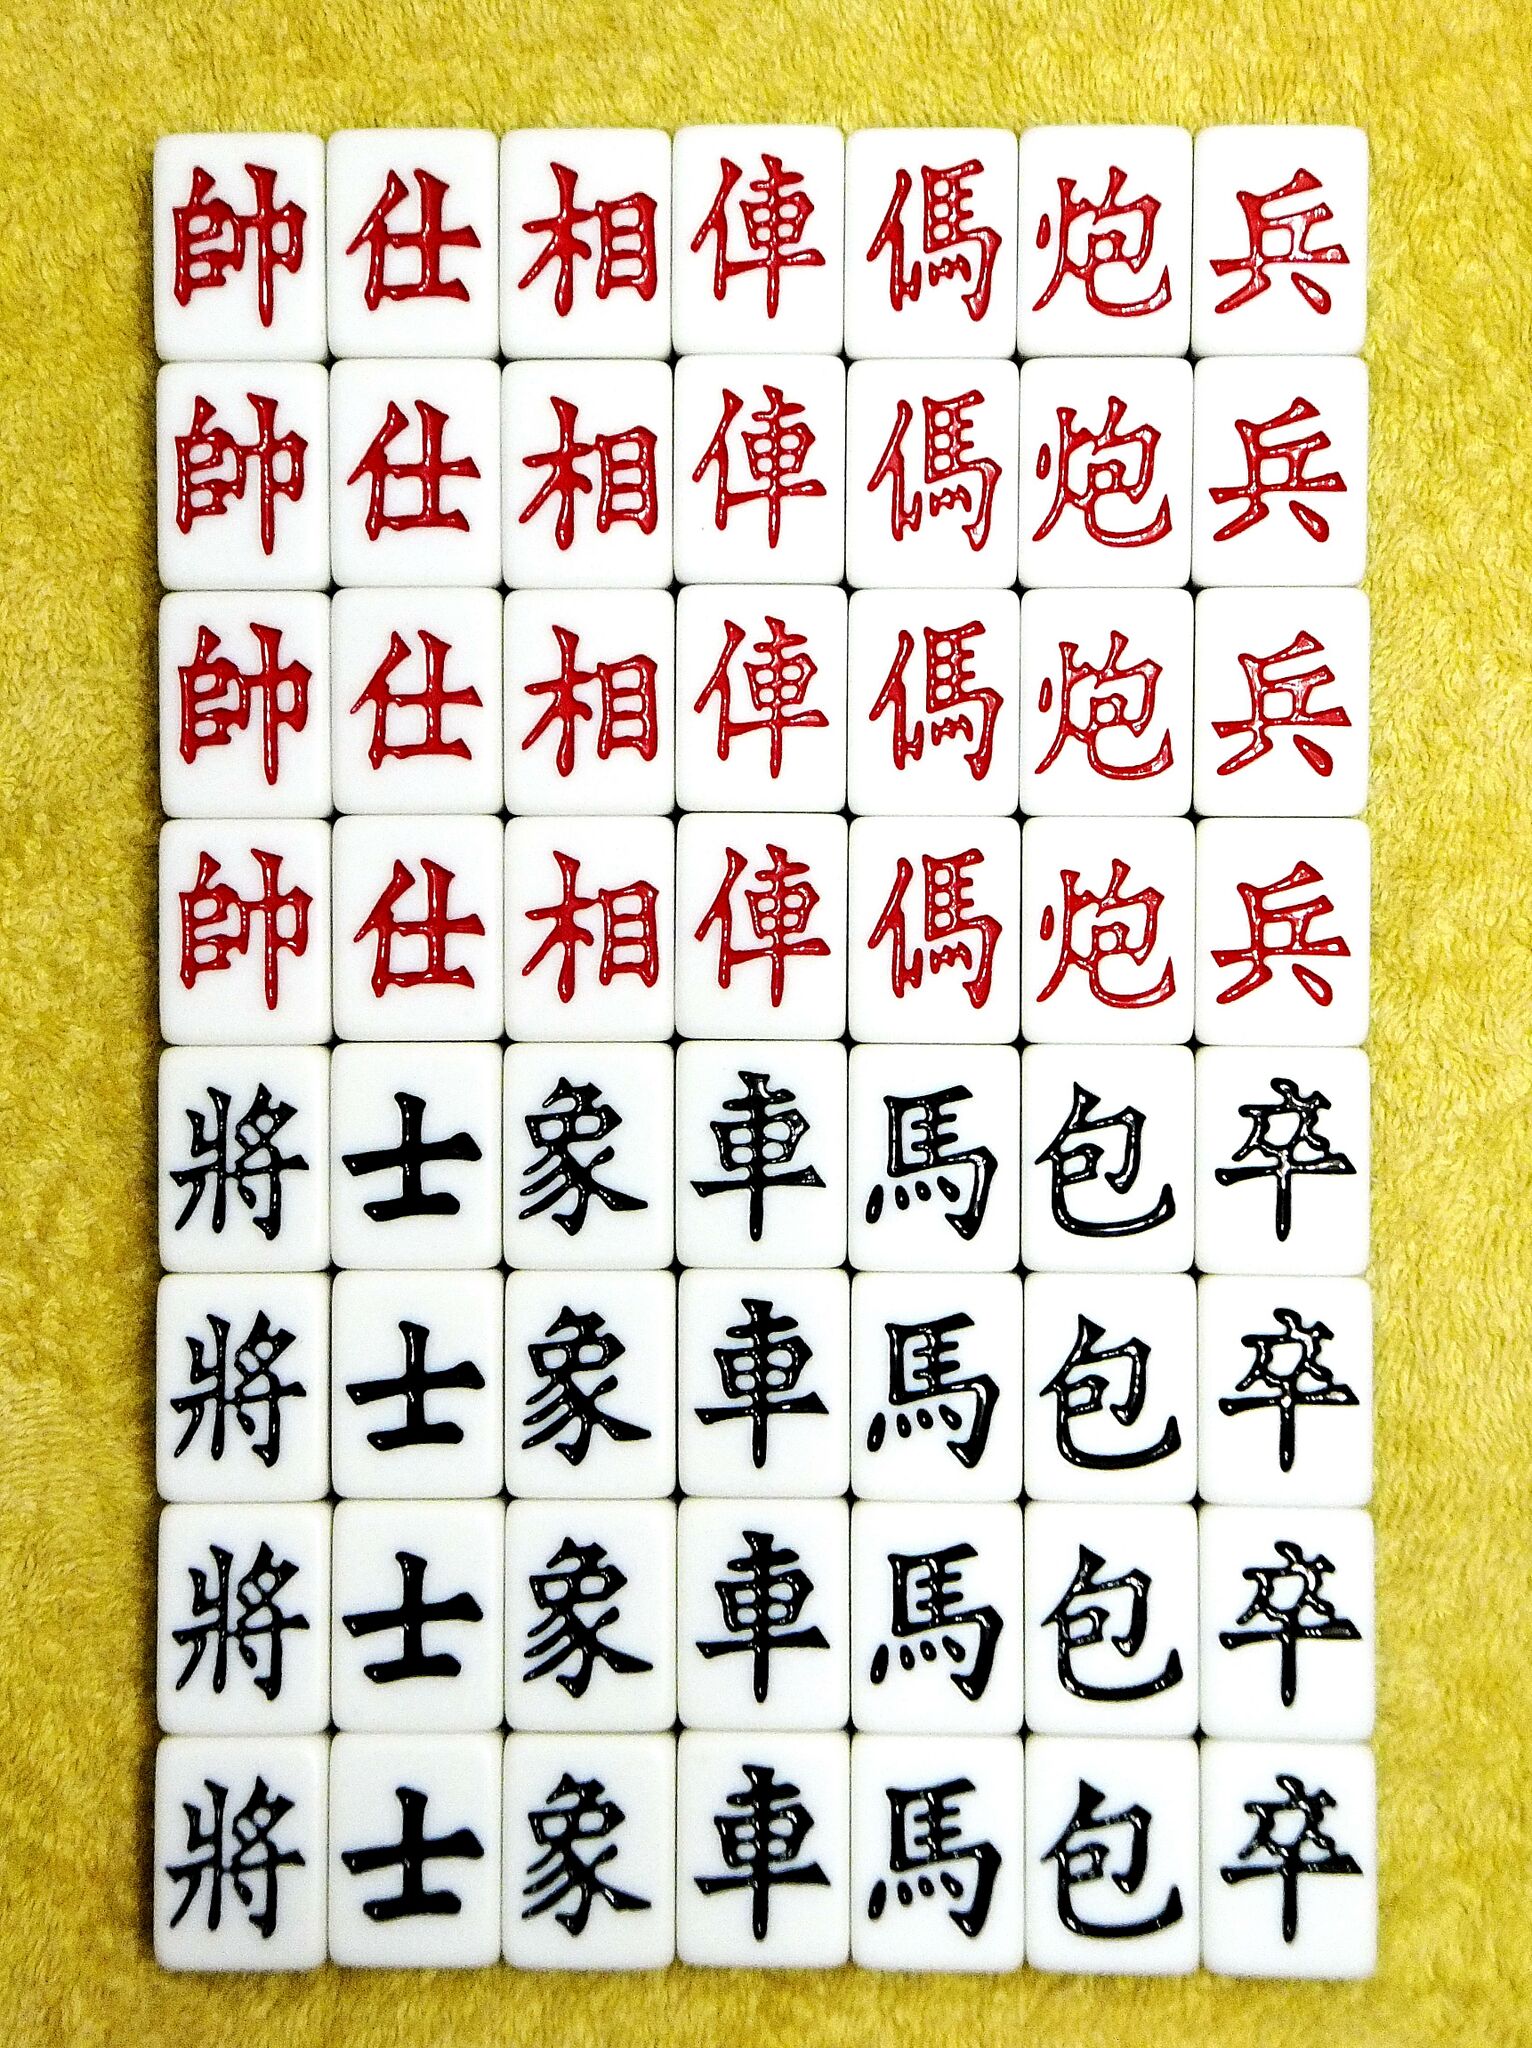 帥仕相俥傌炮兵
帥仕相俥傌炮兵
帥仕相俥傌炮兵
帥仕相俥傌炮兵
將士象車馬包卒
將士象車馬包卒
將士象車馬包卒
將士象車馬包卒